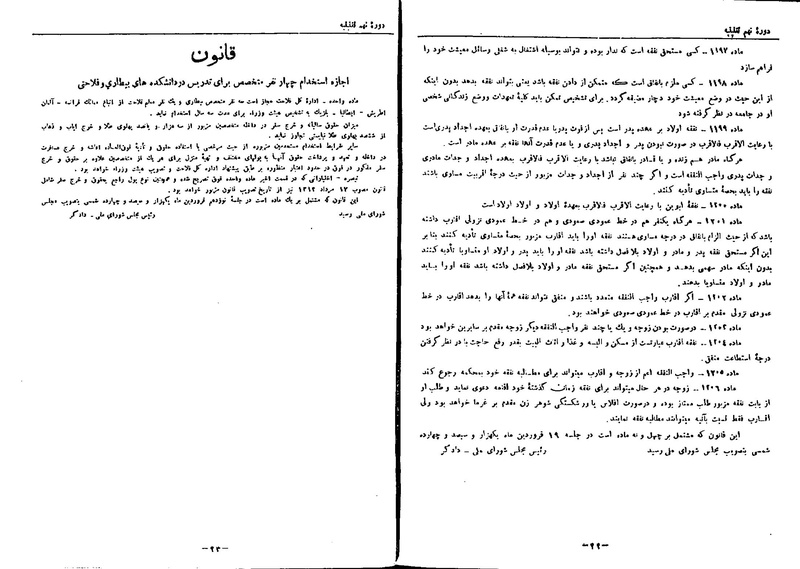 دورهٔ نهم تقنینیه
ماده ۱۱۹۷ - کسی مستحق نفقه است که ندار بوده و نتواند بوسیله اشتغال به شغلی وسائل معیشت خود را
فراهم سازد
ماده ۱۱۹۸ - کسی ملزم بانفاق است که متمکن از دادن نفقه باشد یعنی بتواند نفقه بدهد بدون اینکه
از این حیث در وضع معیشت خود دچار مضیقه گردد. برای تشخیص تمکن باید کلیهٔ تعهدات ووضع زندگانی شخصی
او در جامعه در نظر گرفته شود
ماده ۱۱۹۹ - نفقه اولاد بر عهده پدر است پس از فوت پدر یا عدم قدرت او بانفاق بعهده اجداد پدری است با
رعایت الاقرب فالاقرب در صورت نبودن پدر و اجداد پدری و یا عدم قدرت آنها نفقه بر عهده مادر است.
هرگاه مادر هم زنده و یا قادر بانفاق نباشد با رعایت الاقرب فالاقرب بعهده اجداد و جدات مادری
و جدات پدری واجب النفقه است و اگر چند نفر از اجداد و جدات مزبور از حیث درجهٔ اقربیت مساوی باشند
نفقه را باید بحصهٔ متساوی تأدیه کنند.
ماده ۱۲۰۰ - نفقهٔ ابوین با رعایت الاقرب فالاقرب بعهدهٔ اولاد و اولاد اولاد است
ماده ۱۲۰۱ - هرگاه یکنفر هم در خط عمودی صعودی و هم در خط عمودی نزولی اقارب داشته
باشد که از حیث الزام بانفاق در درجه مساوی هستند نفقه او را باید اقارب مزبور بحصهٔ متساوی تأدیه کنند بنابر
این اگر مستحق نفقه پدر و مادر و اولاد بلافصل داشته باشد نفقه او را باید پدر و اولاد او متساویا تأدیه کنند
بدون اینکه مادر سهمی بدهد و همچنین اگر مستحق نفقه مادر و اولاد بلافصل داشته باشد نفقه او را باید
مادر و اولاد متساویا بدهند.
ماده ۱۲۰۲ - اگر اقارب واجب النفقه متعدد باشند و منفق نتواند نفقه همهٔ آنها را بدهد اقارب در خط
عمودی نزولی مقدم بر اقارب در خط عمودی صعودی خواهند بود.
ماده ۱۲۰۳ - درصورت بودن زوجه و یک یا چند نفر واجب النفقه دیگر زوجه مقدم بر سایرین خواهد بود
ماده ۱۲۰۴ - نفقه اقارب عبارتست از مسکن و البسه و غذا و اثاث البیت بقدر رفع حاجت با در نظر گرفتن
درجهٔ استطاعت منفق.
ماده ۱۲۰۵ - واجب النفقه اعم از زوجه و اقارب میتواند برای مطالبه نفقه خود بمحکمه رجوع کند
ماده ۱۲۰۶ - زوجه در هر حال میتواند برای نفقه زمان گذشتهٔ خود اقامه دعوی نماید و طلب او
از بابت نفقه مزبور طلب ممتاز بوده و درصورت افلاس یا ورشکستگی شوهر زن مقدم بر غرما خواهد بود ولی
اقارب فقط نسبت بآتیه میتوانند مطالبه نفقه نمایند.
این قانون که مشتمل بر چهل و نه ماده است در جلسه ۱۹ فروردین ماه یکهزار و سیصد و چهارده
شمسی بتصویب مجلس شورای ملی رسید رئیس مجلس شورای ملی - دادگر
-۲۲-
دورهٔ نهم تقنینیه
قانون
اجازه استخدام چهار نفر متخصص برای تدریس در دانشکده های بیطاری و فلاحتی
ماده واحده - ادارهٔ کل فلاحت مجاز است سه نفر متخصص بیطاری و یک نفر معلم فلاحت از اتباع ممالک فرانسه - آلمان
اطریش - ایطالیا - بلژیک به تشخیص هیئت وزراء برای مدت سه سال استخدام نماید.
میزان حقوق سالیانه و خرج سفر در داخله متخصصین مزبور از سه هزار و پانصد پهلوی طلا و خرج ایاب و ذهاب
از ششصد پهلوی طلا نبایستی تجاوز نماید.
سایر شرایط استخدام مستخدمین مزبوره از حیث مرخصی با استفاده حقوق و تأدیهٔ فوق‌العاده اثاثه و خرج مسافرت
در داخله و تعهد و پرداخت حقوق آنها به پولهای مختلف و تهیهٔ منزل برای هر یک از متخصصین علاوه بر حقوق و خرج
سفر مذکور در فوق در حدود اعتبار منظوره بر طبق پیشنهاد اداره کل فلاحت و تصویب هیئت وزراء خواهد بود.
تبصره - اختیاراتی که در قسمت اخیر ماده واحده فوق تصریح شده و همچنین نوع پول راجع بحقوق و خرج سفر شامل
قانون مصوب ۱۳ مرداد ۱۳۱۳ نیز از تاریخ تصویب قانون مزبور خواهد بود.
این قانون که مشتمل بر یک ماده است در جلسهٔ نوزدهم فروردین ماه یکهزار و سیصد و چهارده شمسی بتصویب مجلس
شورای ملی رسید رئیس مجلس شورای ملی - دادگر
-۲۳-